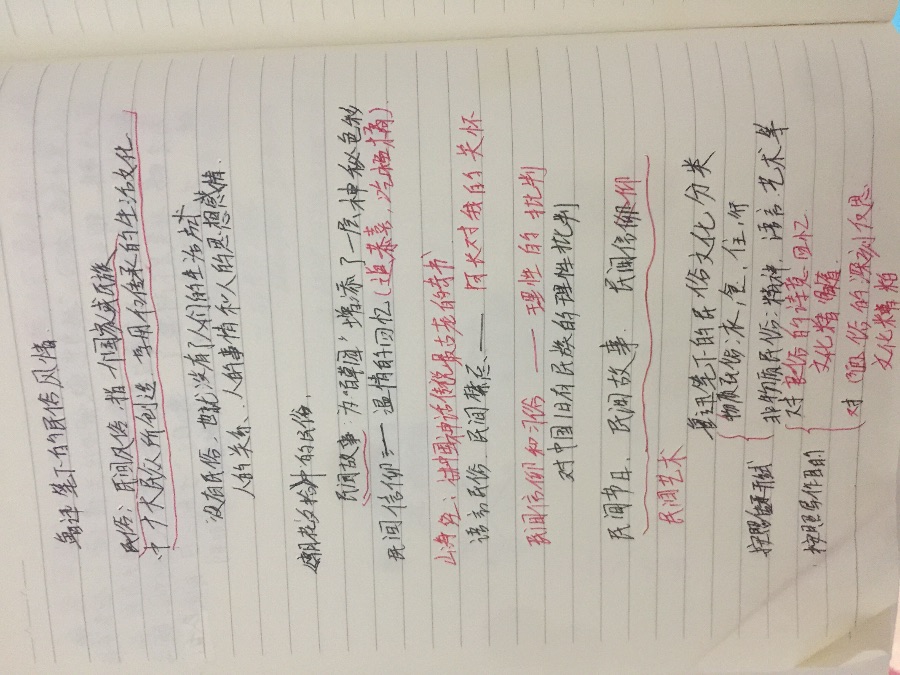 鲁迅笔下的民俗风情
民俗：民间风俗，指一个国家或民族
中广大民众所创造、享用和传承的生活文化
没有民俗，也就没有了人们的生活方式
人的关系、人的事情和人的思想感情。
朝花夕拾中的民俗。
民间故事：为"百草园"增添了一层神秘色彩
民间信仰：— 温情的回忆（道恭喜，吃福橘）
山海经：讲中国神话传说最古老的奇书
语言民俗、民间禁忌、—— 因长对我的关怀
民间信仰和习俗 —— 理性的批判
对中国旧有民族的理性批判
民间节日、民间故事、民间信仰
民间艺术
鲁迅笔下的民俗文化分类
按照表现形式
物质民俗：衣、食、住、行
非物质民俗：精神、语言、艺术等
按照写作目的
对良俗的诗意回忆
文化精髓
对陋俗的深刻反思
文化糟粕